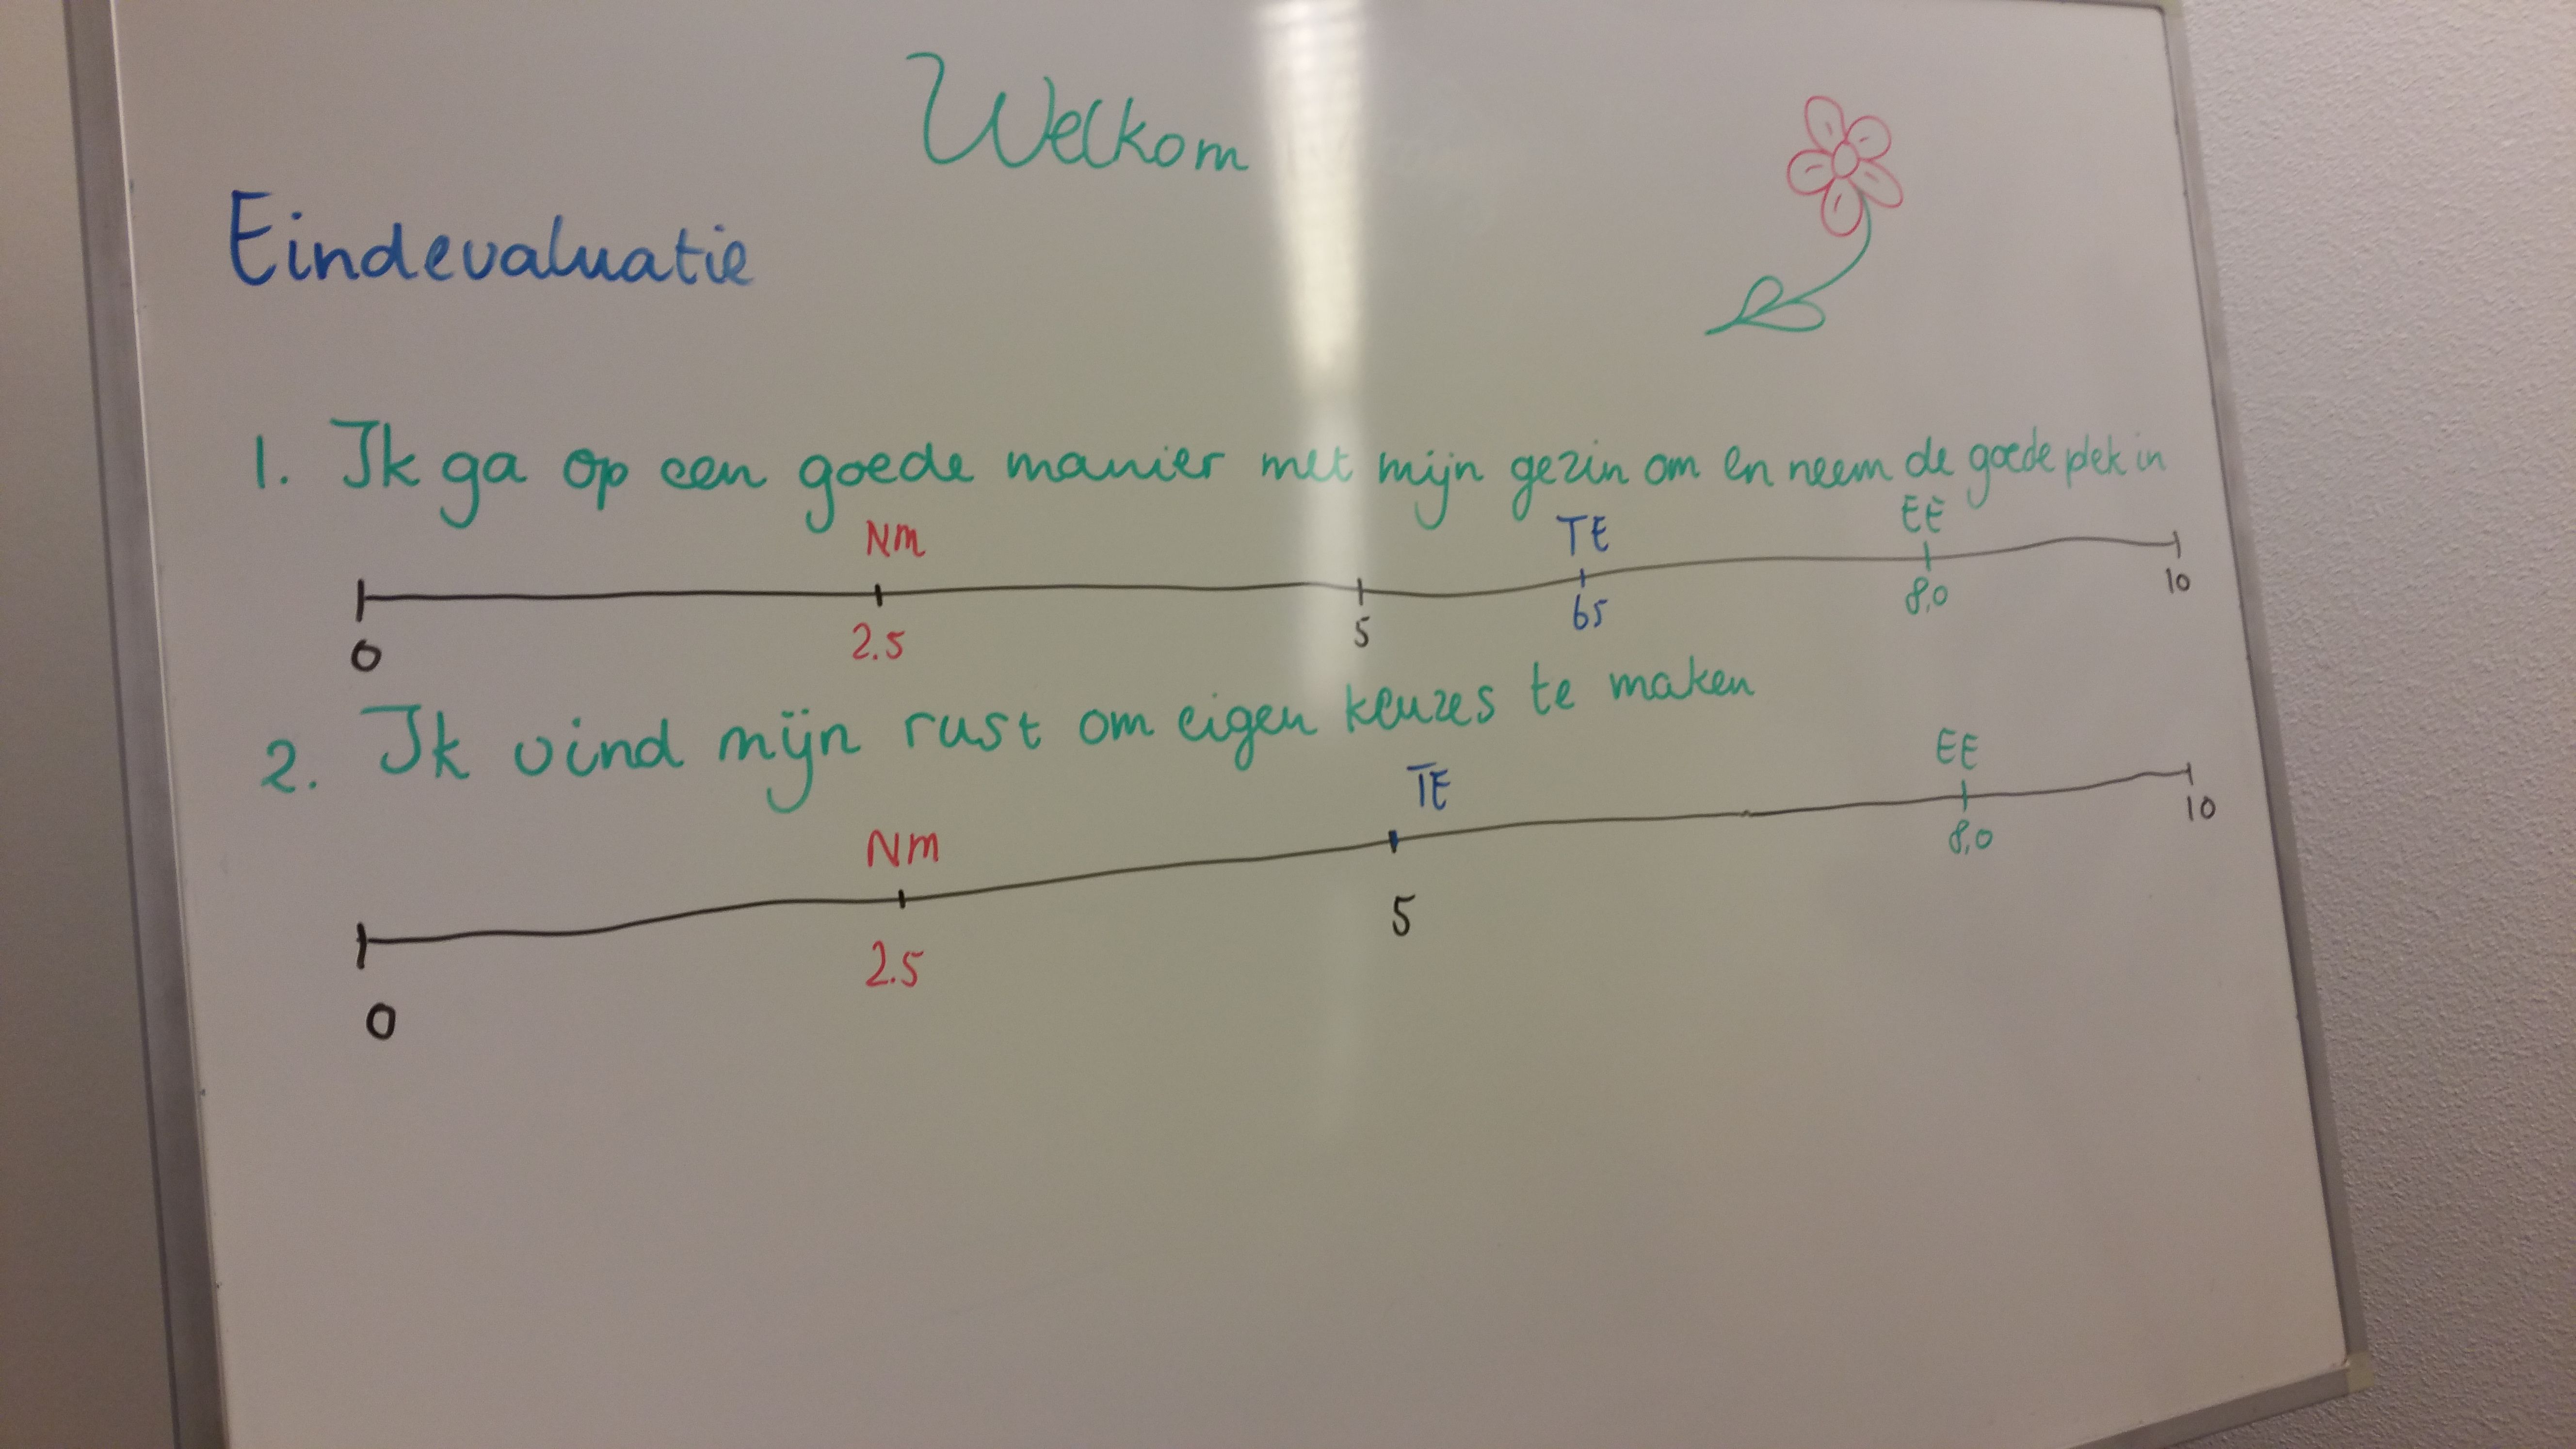 Welkom
Eindevaluatie
1. Ik ga op een goede manier met mijn gezin om en neem de goede plek in
Nm TE EE
0 2.5 5 65 8,0 10
2. Ik vind mijn rust om eigen keuzes te maken
Nm TE EE
0 2.5 5 8,0 10